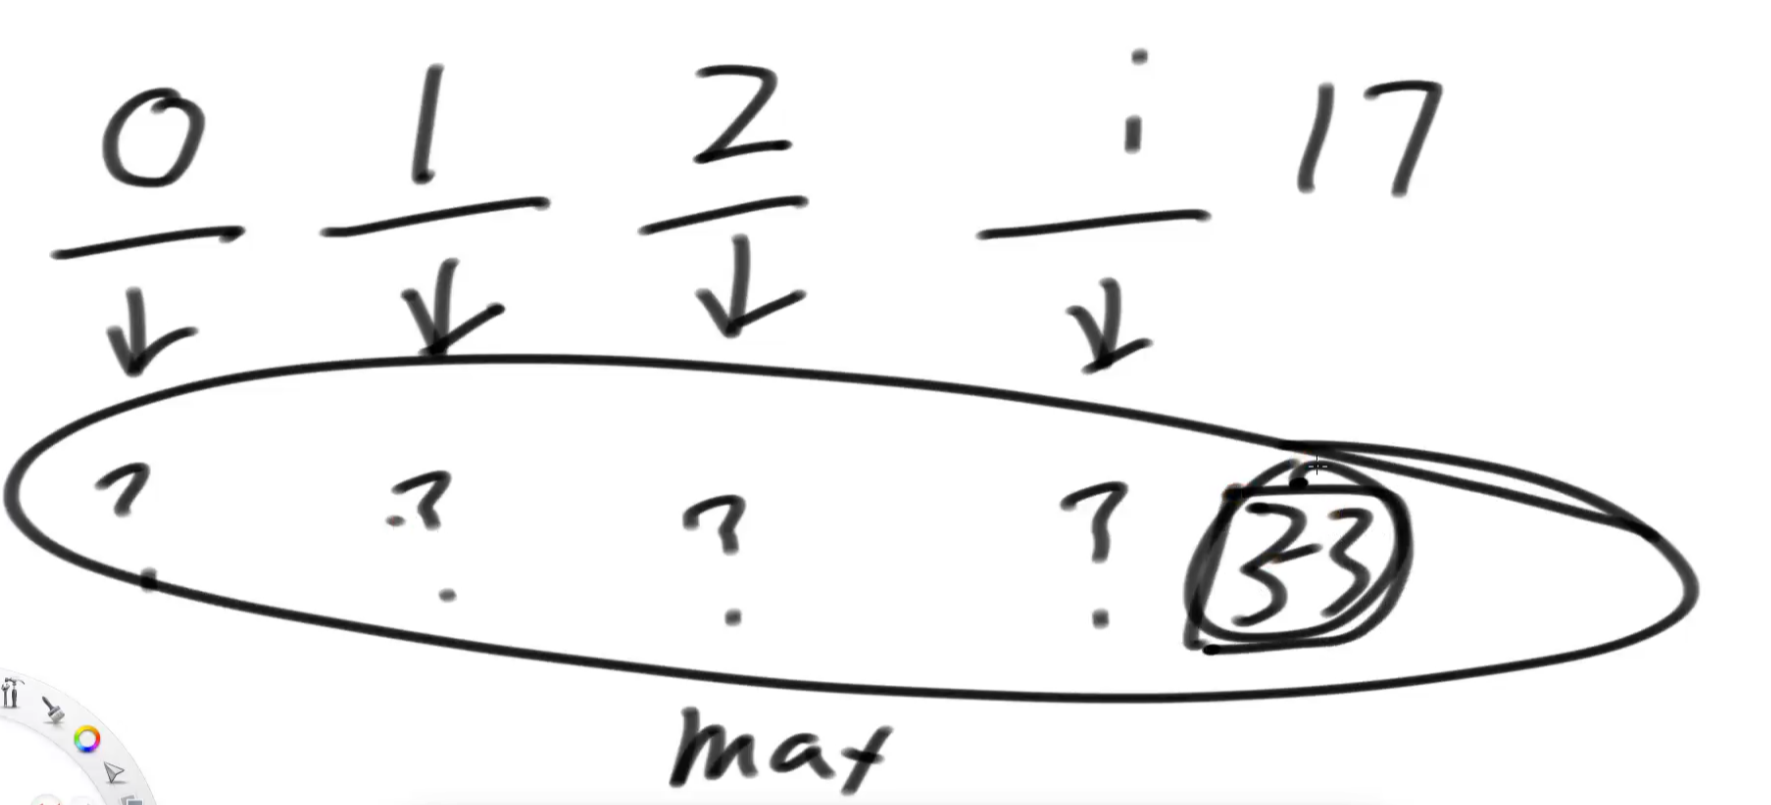 0 1 2 i 17
? ? ? ? 33
max